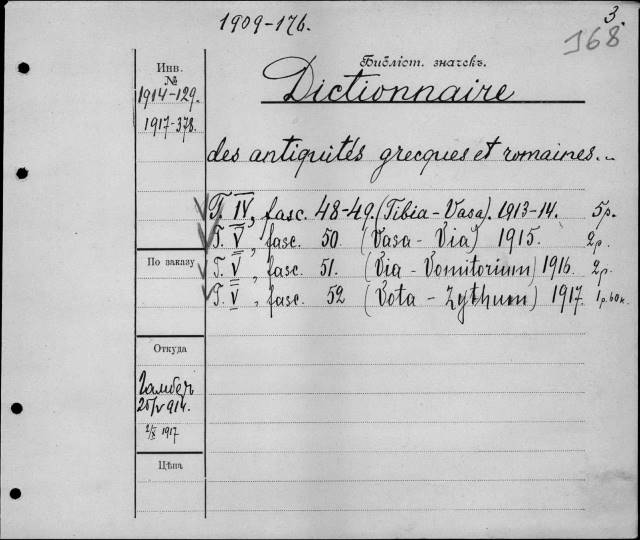 1909-176.
3.
368
Инв.
№
Библіот. значекъ.
1914-129.
Dictionnaire
1917-378.
des antiquités grecques et romaines..
T. IV, fasc. 48-49. (Tibia-Vasa). 1913-14. 5р.
T. V, fasc. 50. (Vasa-Via) 1915. 2р.
По заказу
T. V, fasc. 51. (Via-Vomitorium) 1916. 2р.
T. V, fasc. 52 (Vota-Zythum) 1917. 1р.60к.
Откуда
Гамберъ
25/V 914.
2/X 1917
Цѣна